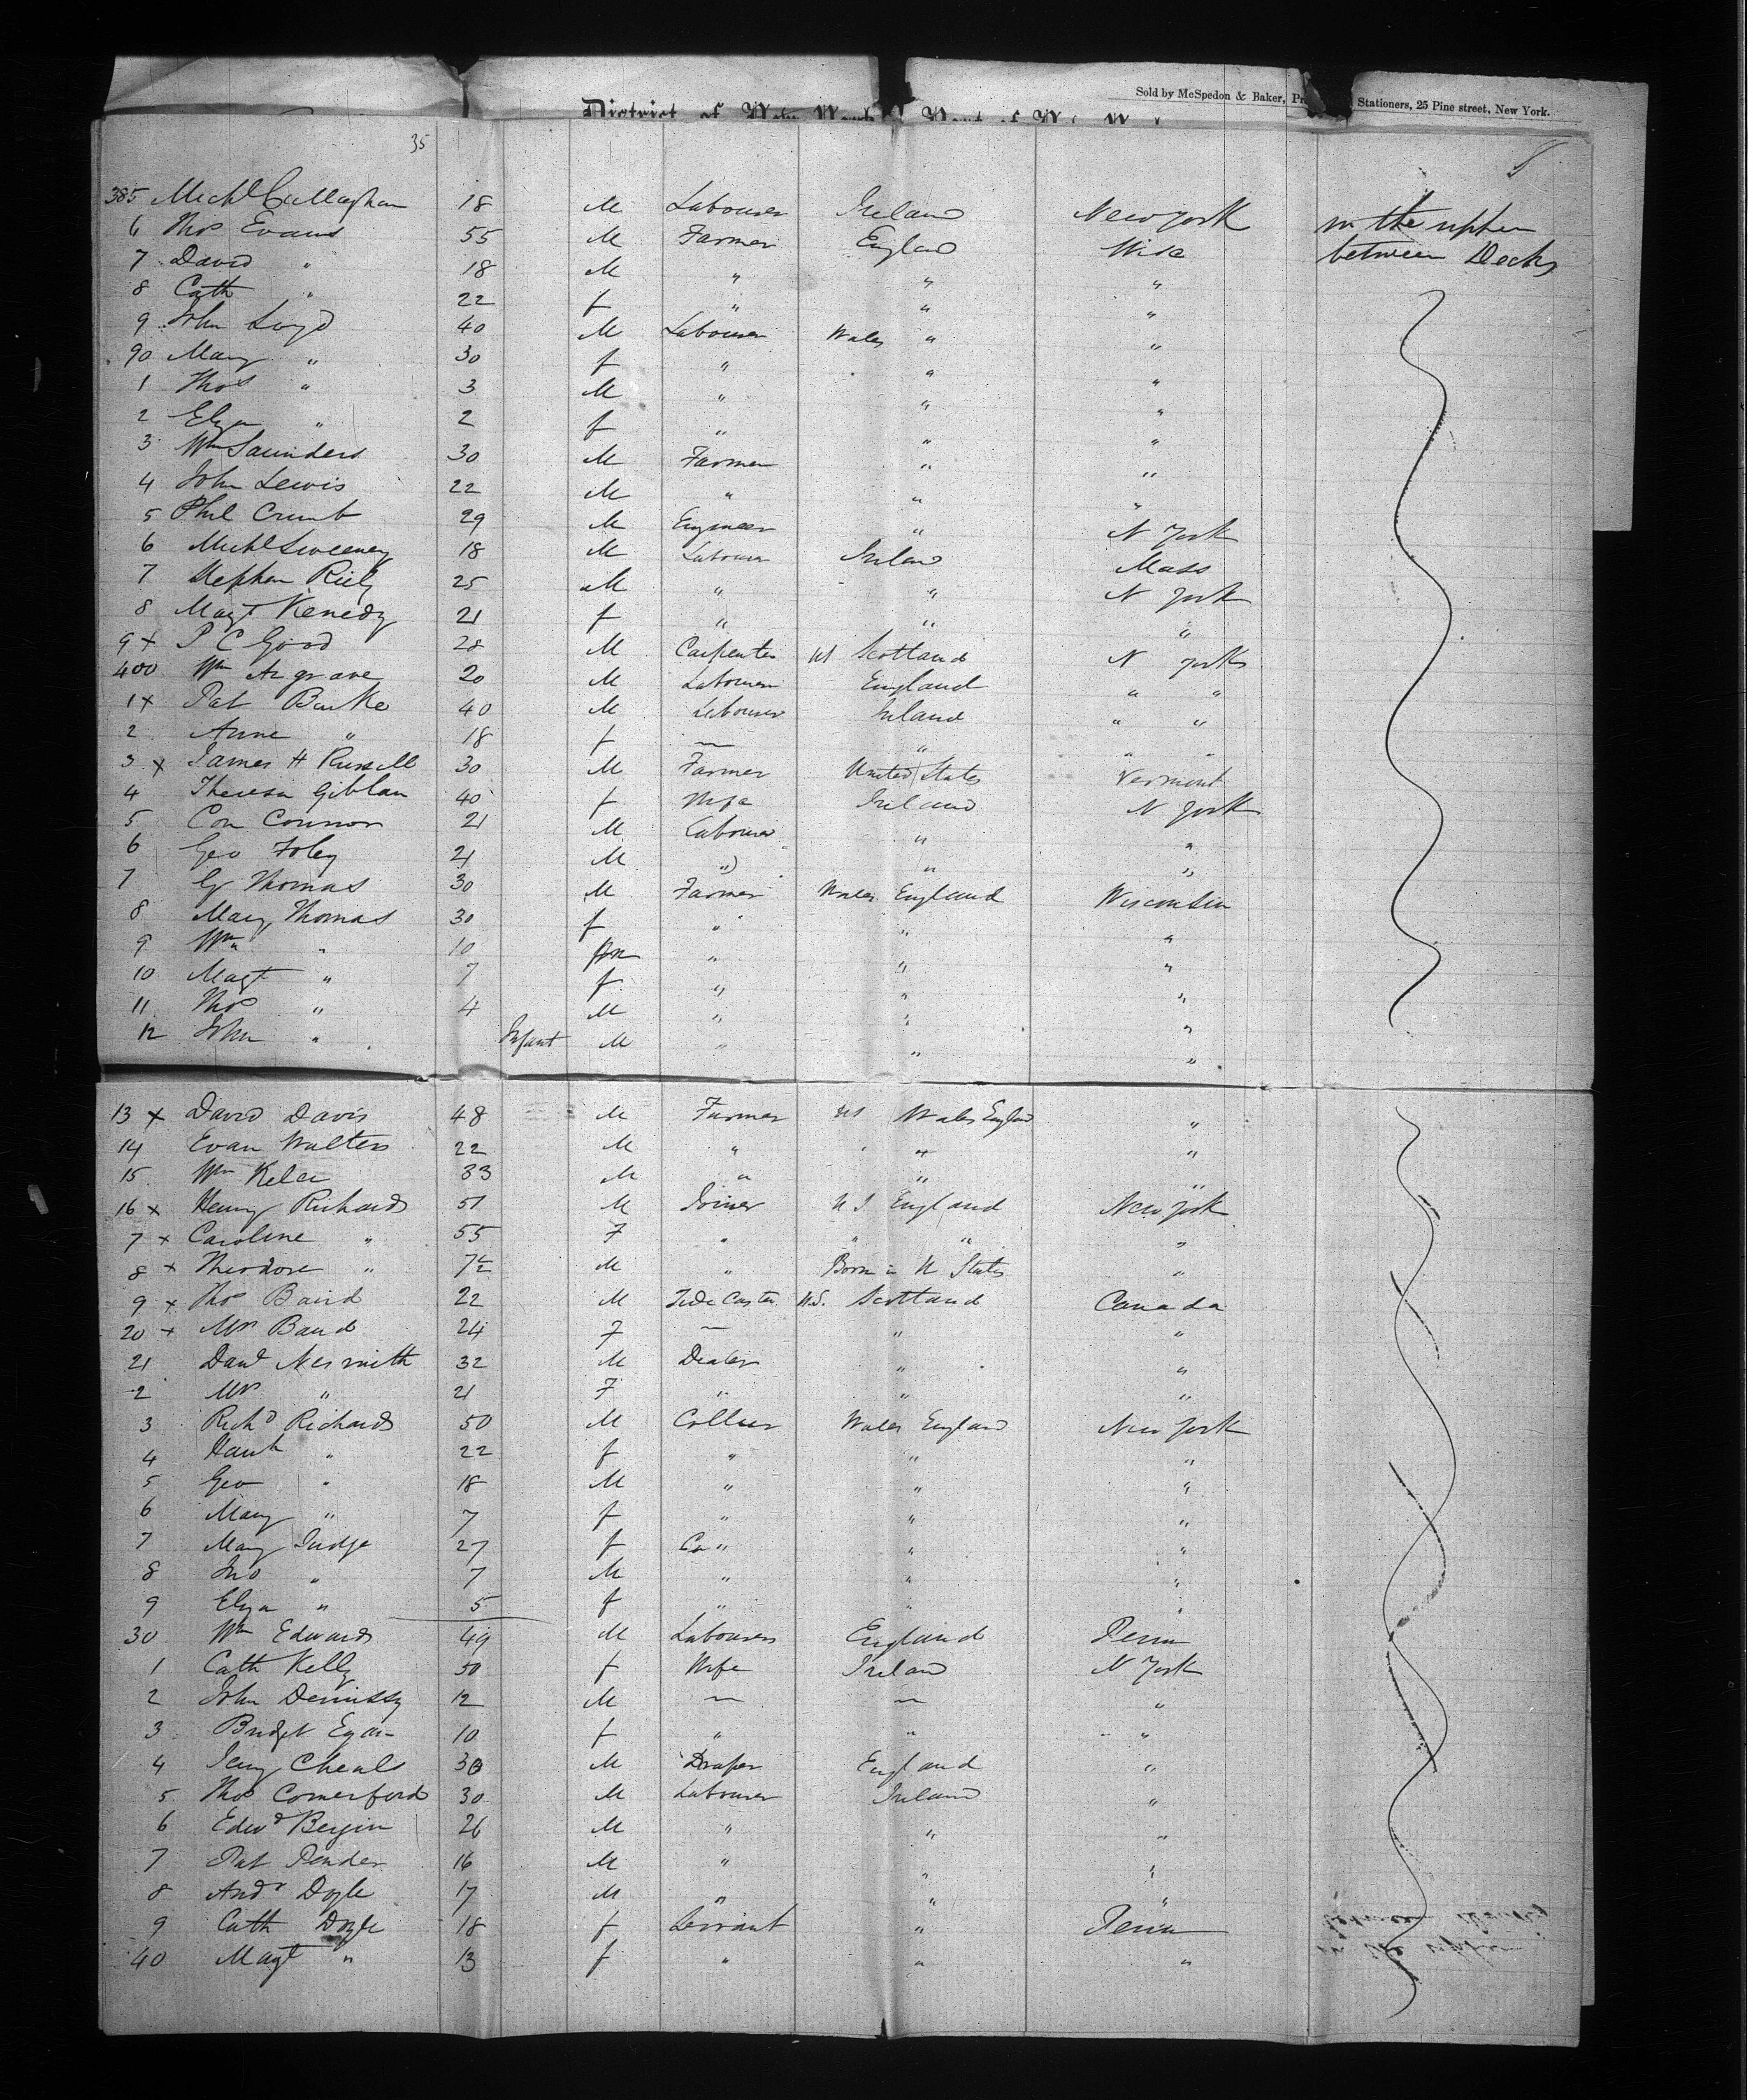 Sold by McSpedon & Baker, Stationers, 25 Pine street, New York.
District of New York Port of
35
385 Michl Callaghan 18 M Labourer Ireland New York in the upper
6 Thos Evans 55 M Farmer England Wisc between Decks
7 David " 18 M " " "
8 Cath " 22 f " " "
9 John Loyd 40 M Labourer Wales " "
90 Mary " 30 f " " "
1 Thos " 3 M " " "
2 Eliza " 2 f " " "
3 Wm Saunders 30 M Farmer " "
4 John Lewis 22 M " " "
5 Phil Crumb 29 M Engineer " N York
6 Michl Sweeney 18 M Labourer Ireland Mass
7 Stephen Riely 25 M " " N York
8 Magt Kenedy 21 f " " "
9 x P C Good 28 M Carpenter US Scotland N York
400 Wm Argrave 20 M Labourer England " "
1 x Pat Burke 40 M Labourer Ireland " "
2 Anne " 18 f — " " "
3 x James H Russell 30 M Farmer United States Vermont
4 Theresa Giblan 40 f Wife Ireland N York
5 Con Connor 21 M Labourer " "
6 Geo Foley 21 M " " "
7 G Thomas 30 M Farmer Wales England Wisconsin
8 Mary Thomas 30 f " " "
9 Wm " 10 m " " "
10 Magt " 7 f " " "
11 Thos " 4 M " " "
12 John " Infant M " " "
13 x David Davis 48 M Farmer US Wales England "
14 Evan Walters 22 M " " " "
15 Wm 33 M " " "
16 x Henry Richards 51 M Joiner U S England New York
7 x Caroline " 55 F " " " "
8 x Theodore " 7½ M " Born in U States "
9 x Thos Baird 22 M U.S. Scotland Canada
20 x Mrs Baird 24 F — " "
21 Davd Nesmith 32 M Dealer " "
2 Mrs " 21 F " " "
3 Richd Richards 50 M Collier Wales England New York
4 Hanh " 22 f " " "
5 Geo " 18 M " " "
6 Mary " 7 f " " "
7 Mary Judge 27 f " " "
8 Jno " 7 M " " "
9 Eliza " 5 f " " "
30 Wm Edwards 49 M Labourer England Penn
1 Cath Kelly 50 f Wife Ireland N York
2 John Dennissy 12 M — — "
3 Bridget Egan 10 f " " "
4 Cheals 30 M Draper England "
5 Thos Comerford 30 M Labourer Ireland "
6 Edwd Bergin 26 M " " "
7 Pat Pender 16 M " " "
8 Andr Doyle 17 M " " "
9 Cath Doyle 18 f Servant " Penn
40 Magt " 13 f " " "